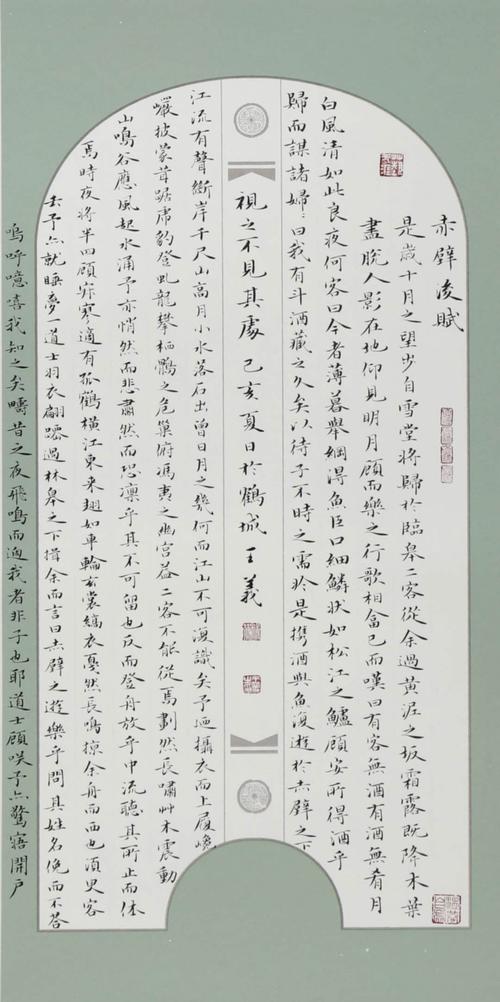 赤壁後賦
是歲十月之望步自雪堂將歸於臨皋二客從余過黃泥之坂霜露既降木葉
盡脫人影在地仰見明月顧而樂之行歌相答已而嘆曰有客無酒有酒無肴月
白風清如此良夜何客曰今者薄暮舉網得魚巨口細鱗狀如松江之鱸顧安所得酒乎
歸而謀諸婦〻曰我有斗酒藏之久矣以待子不時之需於是攜酒與魚復遊於赤壁之下
江流有聲斷岸千尺山高月小水落石出曾日月之幾何而江山不可復識矣予迺攝衣而上履巉
巖披蒙茸踞虎豹登虬龍攀栖鶻之危巢俯馮夷之幽宮蓋二客不能從焉劃然長嘯艸木震動
山鳴谷應風起水涌予亦悄然而悲肅然而恐凜乎其不可留也反而登舟放乎中流聽其所止而休
焉時夜將半四顧寂寥適有孤鶴橫江東來翅如車輪玄裳縞衣戛然長鳴掠余舟而西也須臾客
去予亦就睡夢一道士羽衣翩躚過林皋之下揖余而言曰赤壁之遊樂乎問其姓名俛而不答
嗚呼噫嘻我知之矣疇昔之夜飛鳴而過我者非子也耶道士顧笑予亦驚寤開戶
視之不見其處 己亥夏日於鶴城王義